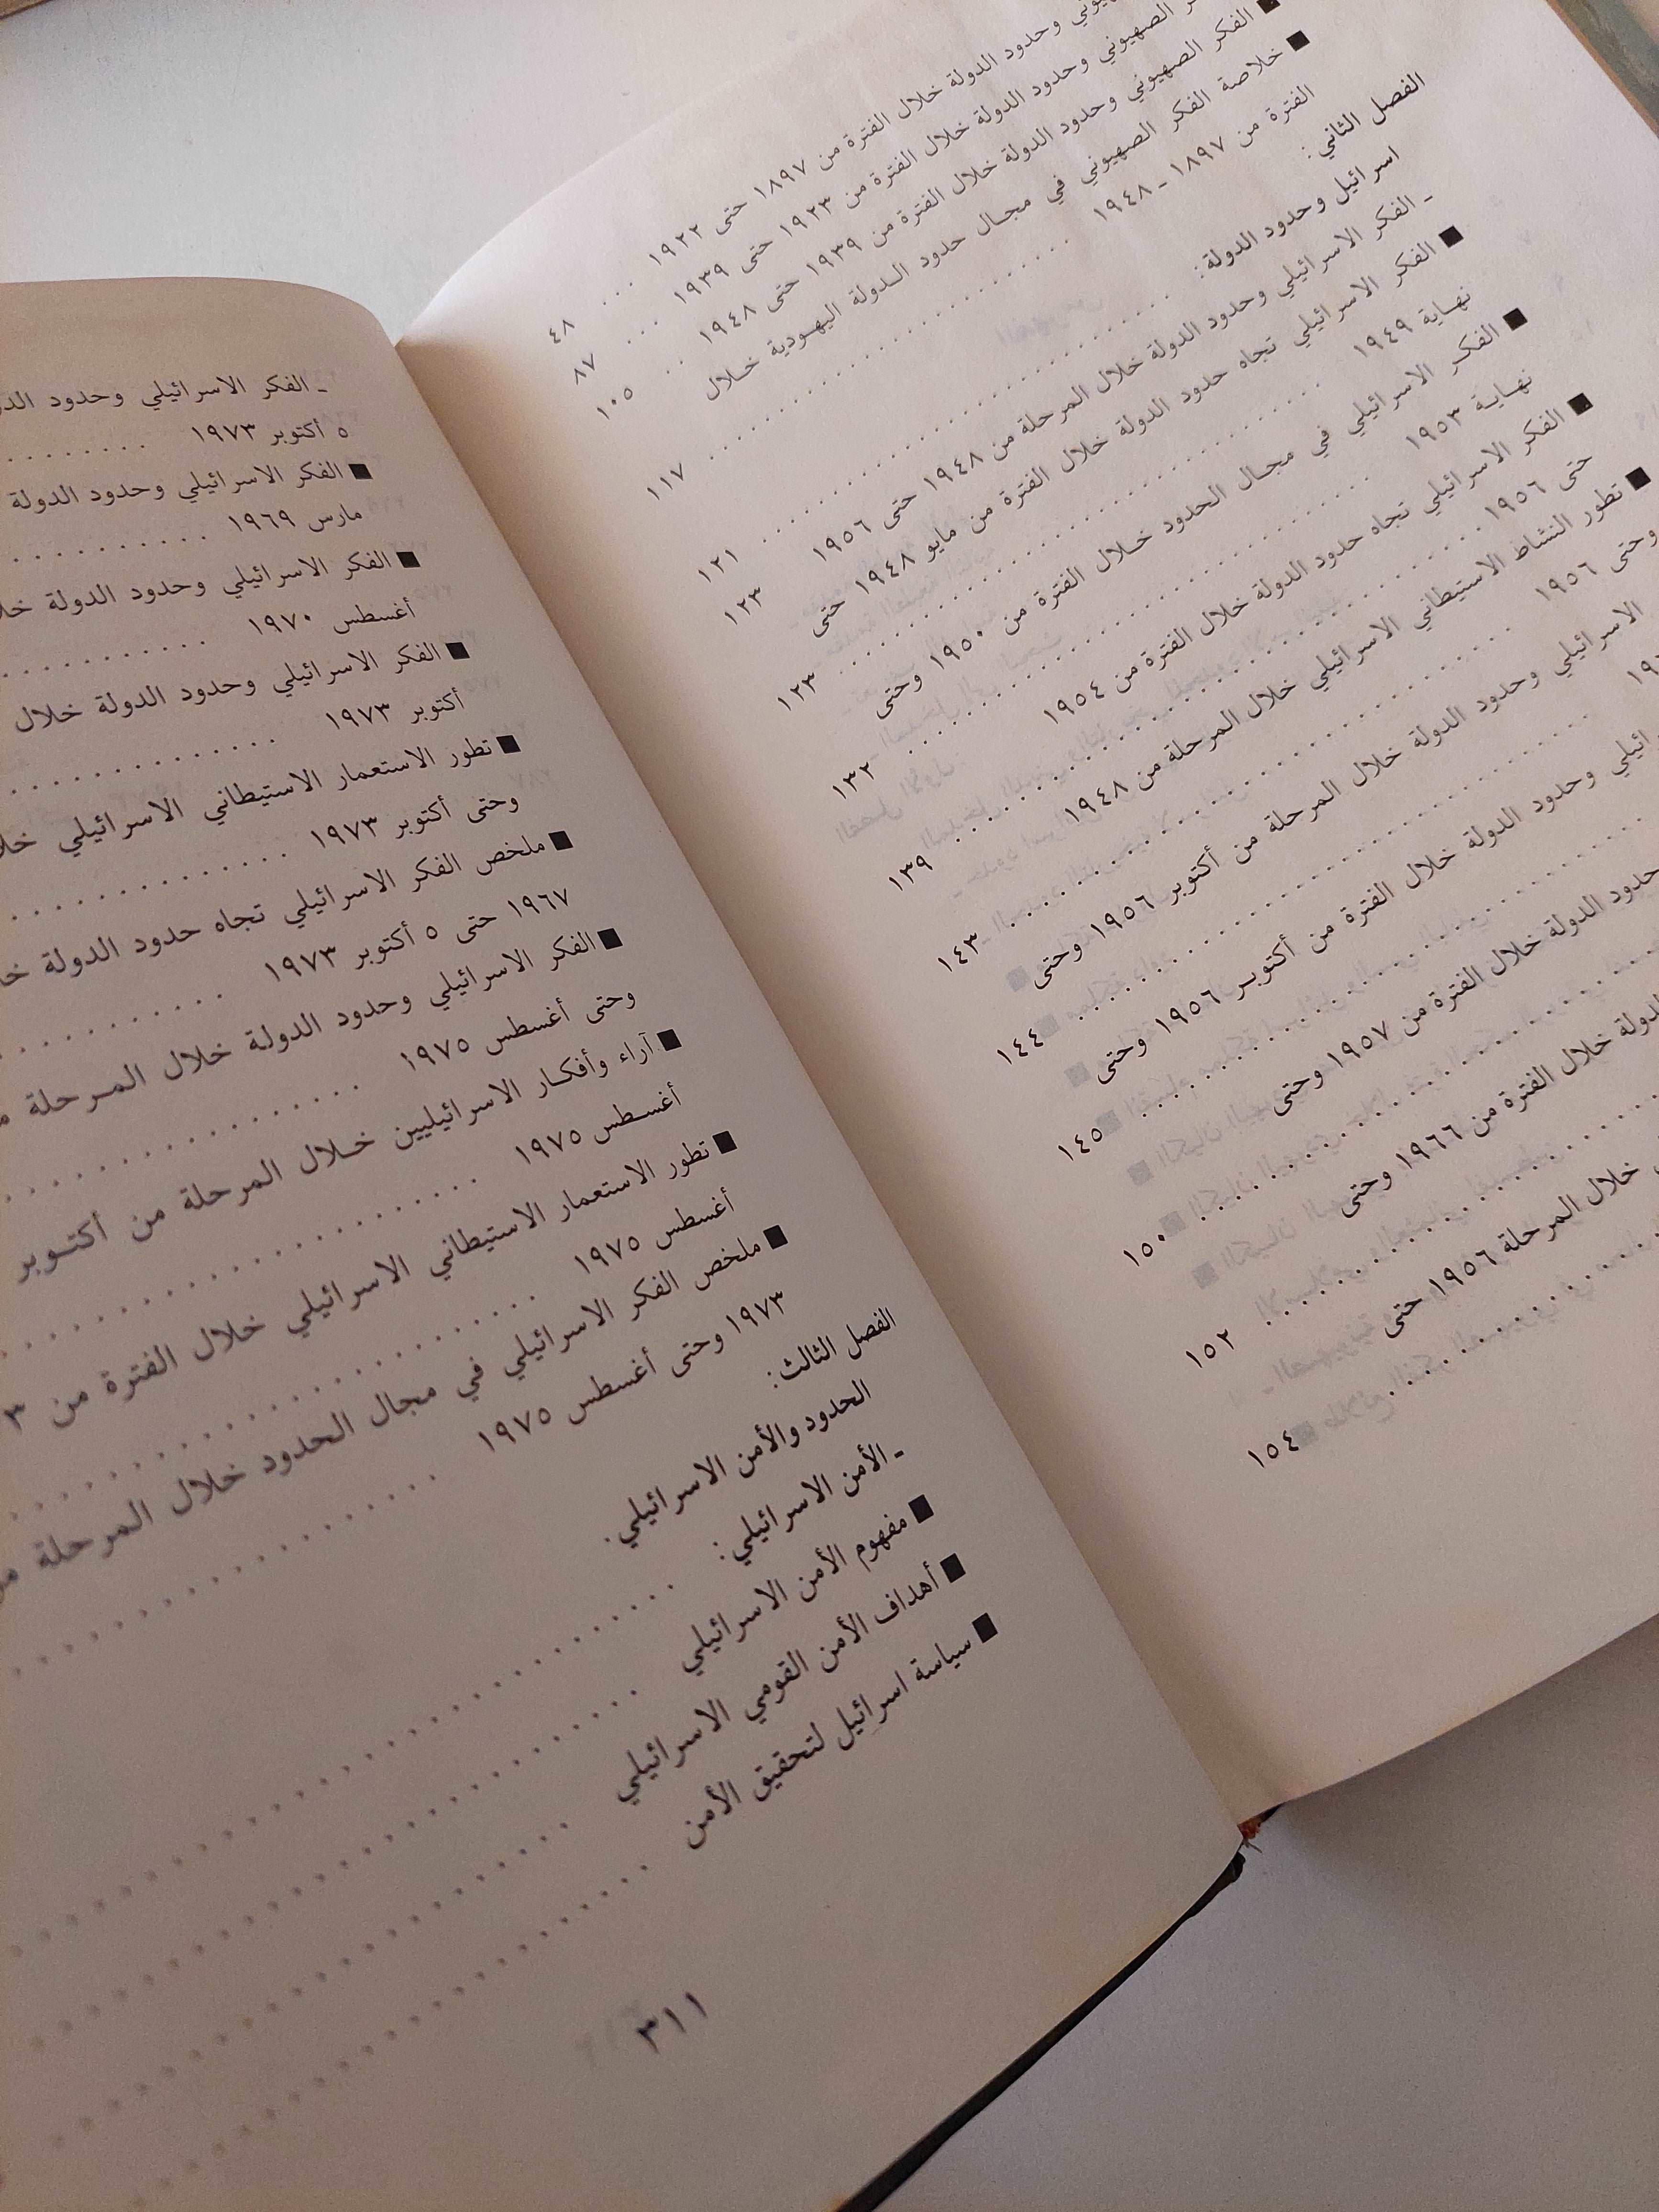 وحدود الدولة خلال الفترة من ١٨٩٧ حتى ١٩٢٢ ... ٤٨
الصهيوني وحدود الدولة خلال الفترة من ١٩٢٣ حتى ١٩٣٩ ... ٨٧
■ الفكر الصهيوني وحدود الدولة خلال الفترة من ١٩٣٩ حتى ١٩٤٨ .. ١٠٥
■ خلاصة الفكر الصهيوني في مجال حدود الدولة اليهودية خلال
الفترة من ١٨٩٧ - ١٩٤٨ ........ ١١٧
الفصل الثاني:
اسرائيل وحدود الدولة: ........ ١٢١
- الفكر الاسرائيلي وحدود الدولة خلال المرحلة من ١٩٤٨ حتى ١٩٥٦ ١٢٣
■ الفكر الاسرائيلي تجاه حدود الدولة خلال الفترة من مايو ١٩٤٨ حتى
نهاية ١٩٤٩ ........ ١٢٣
■ الفكر الاسرائيلي في مجال الحدود خلال الفترة من ١٩٥٠ وحتى
نهاية ١٩٥٣ ........ ١٣٢
■ الفكر الاسرائيلي تجاه حدود الدولة خلال الفترة من ١٩٥٤
حتى ١٩٥٦ ........ ١٣٩
■ تطور النشاط الاستيطاني الاسرائيلي خلال المرحلة من ١٩٤٨
وحتى ١٩٥٦ ........ ١٤٣
الاسرائيلي وحدود الدولة خلال المرحلة من أكتوبر ١٩٥٦ وحتى
........ ١٤٤
وحدود الدولة خلال الفترة من أكتوبر ١٩٥٦ وحتى
........ ١٤٥
حدود الدولة خلال الفترة من ١٩٥٧ وحتى
........ ١٥٠
الدولة خلال الفترة من ١٩٦٦ وحتى
........ ١٥٢
خلال المرحلة ١٩٥٦ حتى
........ ١٥٤
- الفكر الاسرائيلي وحدود
٥ أكتوبر ١٩٧٣ ........
■ الفكر الاسرائيلي وحدود الدولة
مارس ١٩٦٩ ........
■ الفكر الاسرائيلي وحدود الدولة
أغسطس ١٩٧٠ ........
■ الفكر الاسرائيلي وحدود الدولة خلال
أكتوبر ١٩٧٣ ........
■ تطور الاستعمار الاستيطاني الاسرائيلي
وحتى أكتوبر ١٩٧٣ ........
■ ملخص الفكر الاسرائيلي تجاه حدود الدولة
١٩٦٧ حتى ٥ أكتوبر ١٩٧٣ ........
■ الفكر الاسرائيلي وحدود الدولة خلال المرحلة
وحتى أغسطس ١٩٧٥ ........
■ آراء وأفكار الاسرائيليين خلال المرحلة من أكتوبر
أغسطس ١٩٧٥ ........
■ تطور الاستعمار الاستيطاني الاسرائيلي خلال الفترة من
أغسطس ١٩٧٥ ........
■ ملخص الفكر الاسرائيلي في مجال الحدود خلال المرحلة
١٩٧٣ وحتى أغسطس ١٩٧٥ ........
الفصل الثالث:
الحدود والأمن الاسرائيلي.
- الأمن الاسرائيلي: ........
■ مفهوم الأمن الاسرائيلي ........
■ أهداف الأمن القومي الاسرائيلي ........
■ سياسة اسرائيل لتحقيق الأمن ........
٣١١